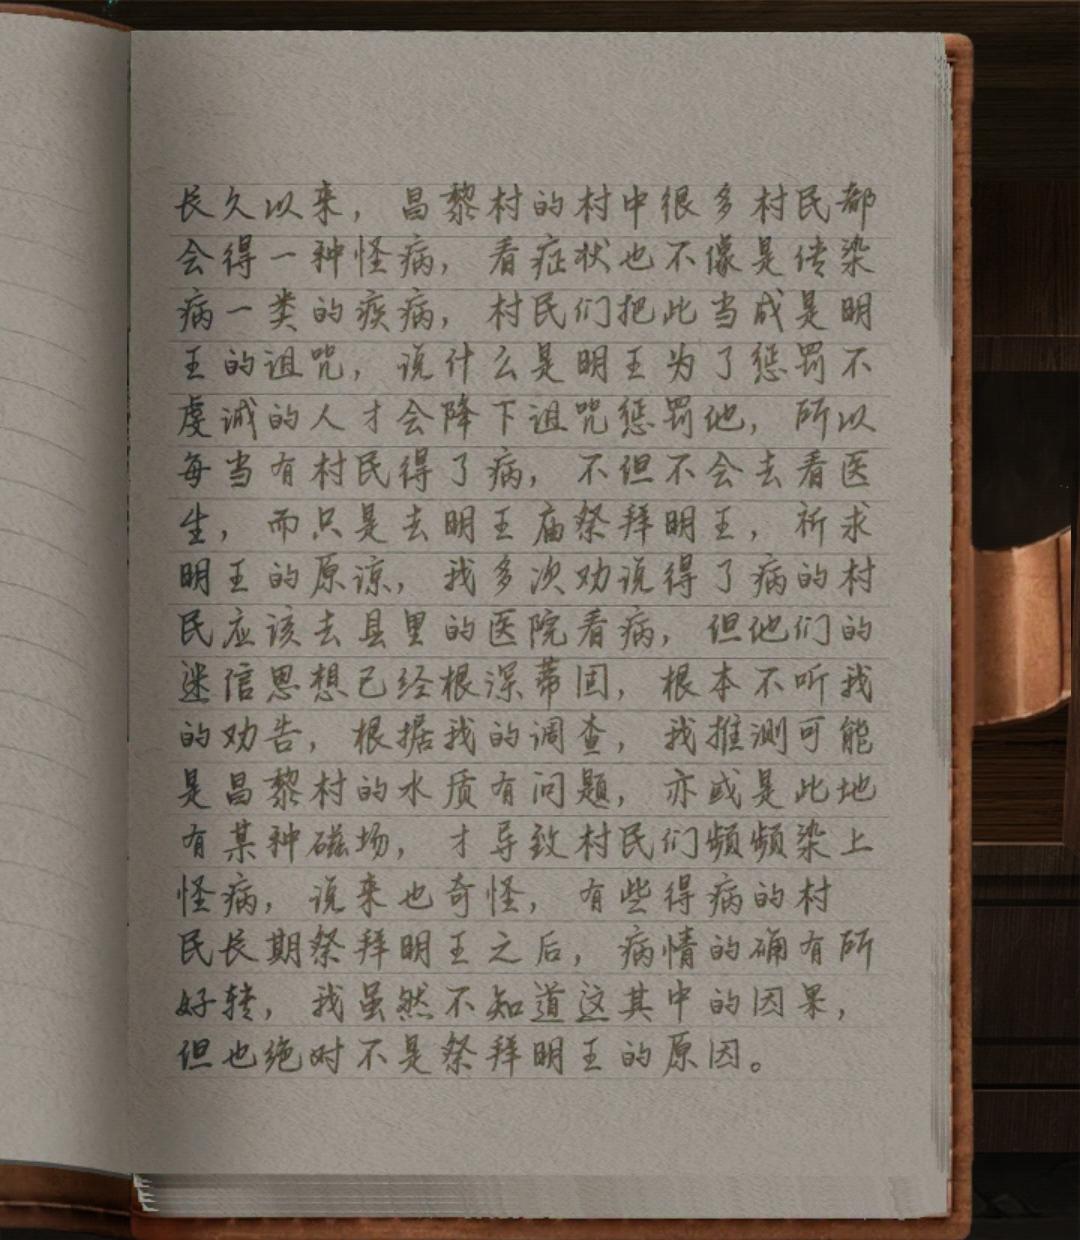 长久以来，昌黎村的村中很多村民都
会得一种怪病，看症状也不像是传染
病一类的疾病，村民们把此当成是明
王的诅咒，说什么是明王为了惩罚不
虔诚的人才会降下诅咒惩罚他，所以
每当有村民得了病，不但不会去看医
生，而只是去明王庙祭拜明王，祈求
明王的原谅，我多次劝说得了病的村
民应该去县里的医院看病，但他们的
迷信思想已经根深蒂固，根本不听我
的劝告，根据我的调查，我推测可能
是昌黎村的水质有问题，亦或是此地
有某种磁场，才导致村民们频频染上
怪病，说来也奇怪，有些得病的村
民长期祭拜明王之后，病情的确有所
好转，我虽然不知道这其中的因果，
但也绝对不是祭拜明王的原因。